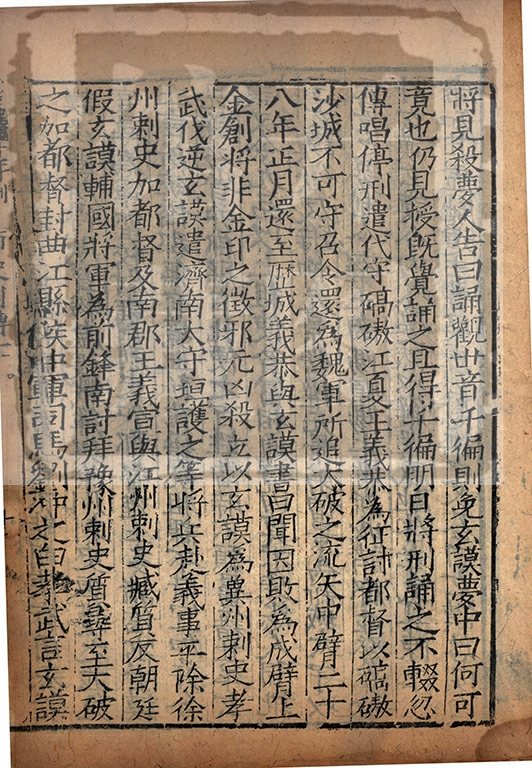 將見殺夢人告曰誦觀世音千徧則免玄謨夢中曰何可
竟也仍見授旣覺誦之且得千徧明日將刑誦之不輟忽
傳唱停刑遣代守碻磝江夏王義恭為征討都督以碻磝
沙城不可守召令還為魏軍所追大破之流矢中臂二十
八年正月還至歷城義恭與玄謨書曰聞因敗為成臂上
金創將非金印之徵邪元凶殺立以玄謨為冀州刺史孝
武伐逆玄謨遣濟南太守垣護之等將兵赴義事平除徐
州刺史加都督及南郡王義宣與江州刺史臧質反朝廷
假玄謨輔國將軍為前鋒南討拜豫州刺史質尋至大破
之加都督封曲江縣侯中軍司馬劉沖之白孝武言玄謨